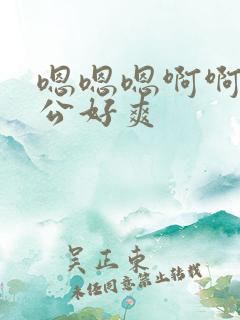 嗯嗯嗯啊啊
公好爽
吴正东
未经同意禁止转载